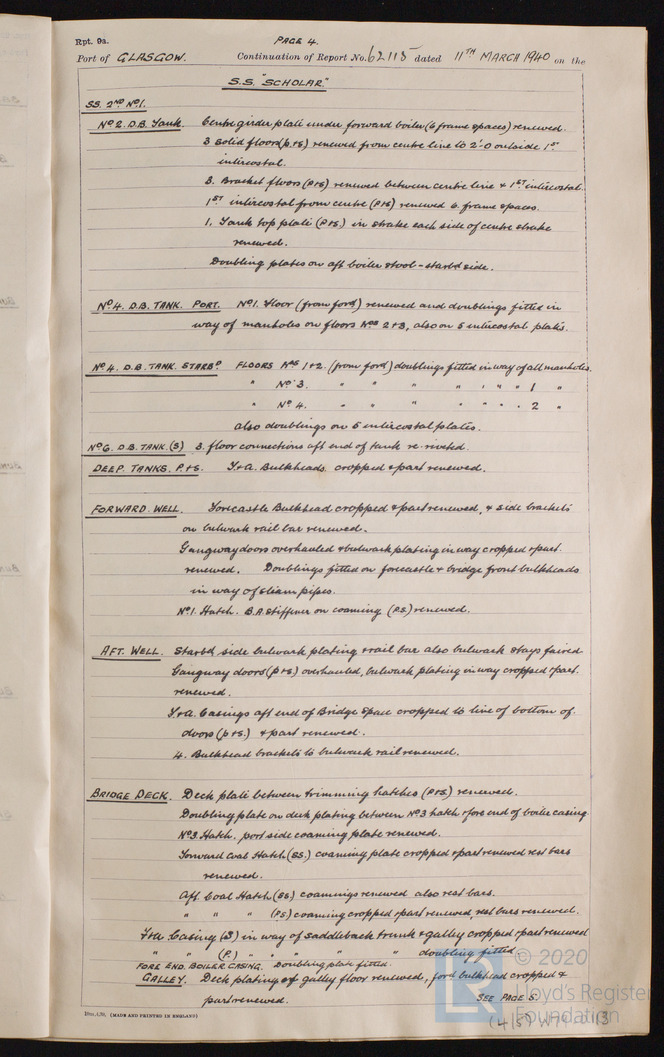 Rpt. 9a.
PAGE 4.
Port of GLASGOW. Continuation of Report No. 62115 dated 11TH MARCH 1940 on the
S.S. "SCHOLAR."
SS. 2ND No.1.
No 2. D.B. Tank. Centre girder plate under forward boiler (6 frame spaces) renewed.
3 Solid floors (p+s) renewed from centre line to 2'-0 outside 1ST
intercostal.
3. Bracket floors (P+S) renewed between centre line & 1ST intercostal.
1ST intercostal from centre (P+S) renewed 6 frame spaces.
1. Tank top plate (P+S.) in strake each side of centre strake
renewed.
Doubling plates on aft boiler stool - starbd side.
No 4. D.B. TANK. PORT. No 1. Floor (from ford) renewed and doublings fitted in
way of manholes on floors Nos 2+3, also on 5 intercostal plates.
No 4. D.B. TANK. STARBD. FLOORS Nos 1+2. (from ford) doublings fitted in way of all manholes.
" No 3. " " " " " " " 1 "
" No 4. " " " " " " " 2 "
also doublings on 5 intercostal plates.
No 6. D.B. TANK (S) 3. floor connections aft end of tank re-riveted.
DEEP. TANKS. P+S. F+A. Bulkheads. cropped & part renewed.
FORWARD. WELL. Forecastle Bulkhead cropped & part renewed, & side brackets
on bulwark rail bar renewed.
Gangway doors overhauled & bulwark plating in way cropped & part.
renewed. Doublings fitted on forecastle & bridge front bulkheads
in way of steam pipes.
No 1. Hatch. B.A Stiffener on coaming (P.S) renewed.
AFT. WELL. Starbd side bulwark plating & rail bar also bulwark stays faired
Gangway doors (P+S) overhauled, bulwark plating in way cropped & part.
renewed.
F+A. Casings aft end of Bridge Space cropped to line of bottom of.
doors (p+s.) & part renewed.
4. Bulkhead brackets to bulwark rail renewed.
BRIDGE DECK. Deck plate between trimming hatches (P+S) renewed.
Doubling plate on deck plating between No 3 hatch & fore end of boiler casing
No 3 Hatch. port side coaming plate renewed.
Forward Coal Hatch (SS.) coaming plate cropped & part renewed rest bars
renewed.
Aft. Coal Hatch (SS) coamings renewed also rest bars.
" " " (P.S.) coaming cropped & part renewed, rest bars renewed.
F+A. Casing (S) in way of saddleback trunk & galley cropped & part renewed
" " (P.) " " " " doubling fitted
FORE END. BOILER CASING. Doubling plate fitted.
GALLEY. Deck plating of galley floor renewed, ford bulkhead cropped &
part renewed.
SEE PAGE 5.
(MADE AND PRINTED IN ENGLAND)
© 2020
LR Lloyd's Register
Foundation